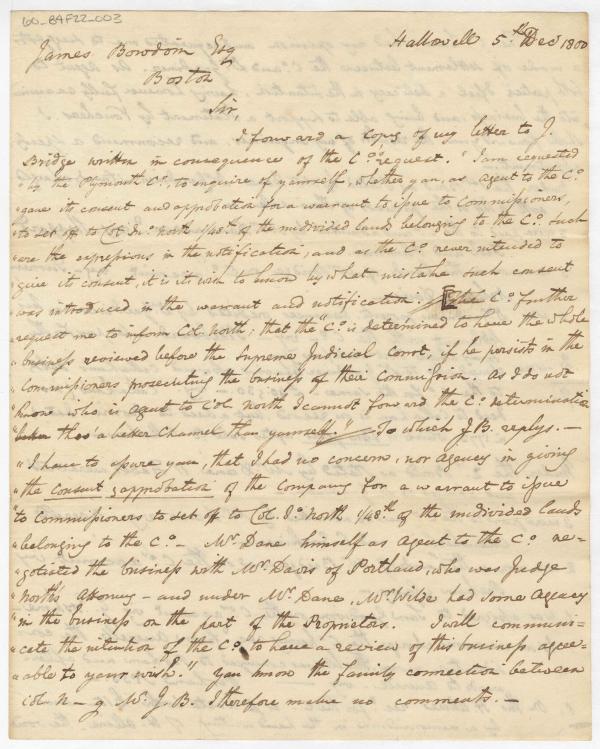 60_BAF22_003
Hallowell 5.th Decr 1800
James Bowdoin Esq
Boston
Sir,
I forward a copy of my letter to J.
Bridge written in consequence of the Co. request. "I am requested
"by the Plymouth Co, to enquire of yourself, whether you, as agent to the Co
"gave its consent and approbation for a warrant to issue to Commissioners,
"to set off to Col. Jno. North 1/48th of the undivided lands belonging to the Co. Such
"are the expressions in the notification, and as the Co. never intended to
"give its consent, it is its wish to know by what mistake such consent
"was introduced in the warrant and notification. [The Co. further
"request me to inform Col. North; that the "Co. is determined to have the whole
"business reviewed before the Supreme Judicial Court, if he persists in the
"Commissioners prosecuting the business of their Commission. As I do not
"know who is agent to Col. North I cannot forward the Co. determination
"thro' a better Channel than yourself." To which J B. replys. —
"I have to assure you, that I had no concern, nor agency in giving
"the consent & approbation of the Company for a warrant to issue
"to Commissioners to set off to Col. Jo. North 1/48th of the undivided lands
"belonging to the Co. — Mr. Dane himself as agent to the Co. ne=
"gotiated the business with Mr. Davis of Portland, who was Judge
"North's attorney — and under Mr. Dane, Mr. Wilde had some agency
"in the business on the part of the Proprietors. I will communi=
"cate the intention of the Co. to have a review of this business agree=
"able to your wish." You know the family connection between
Col. N — & Mr. J. B. I therefore make no comments. —